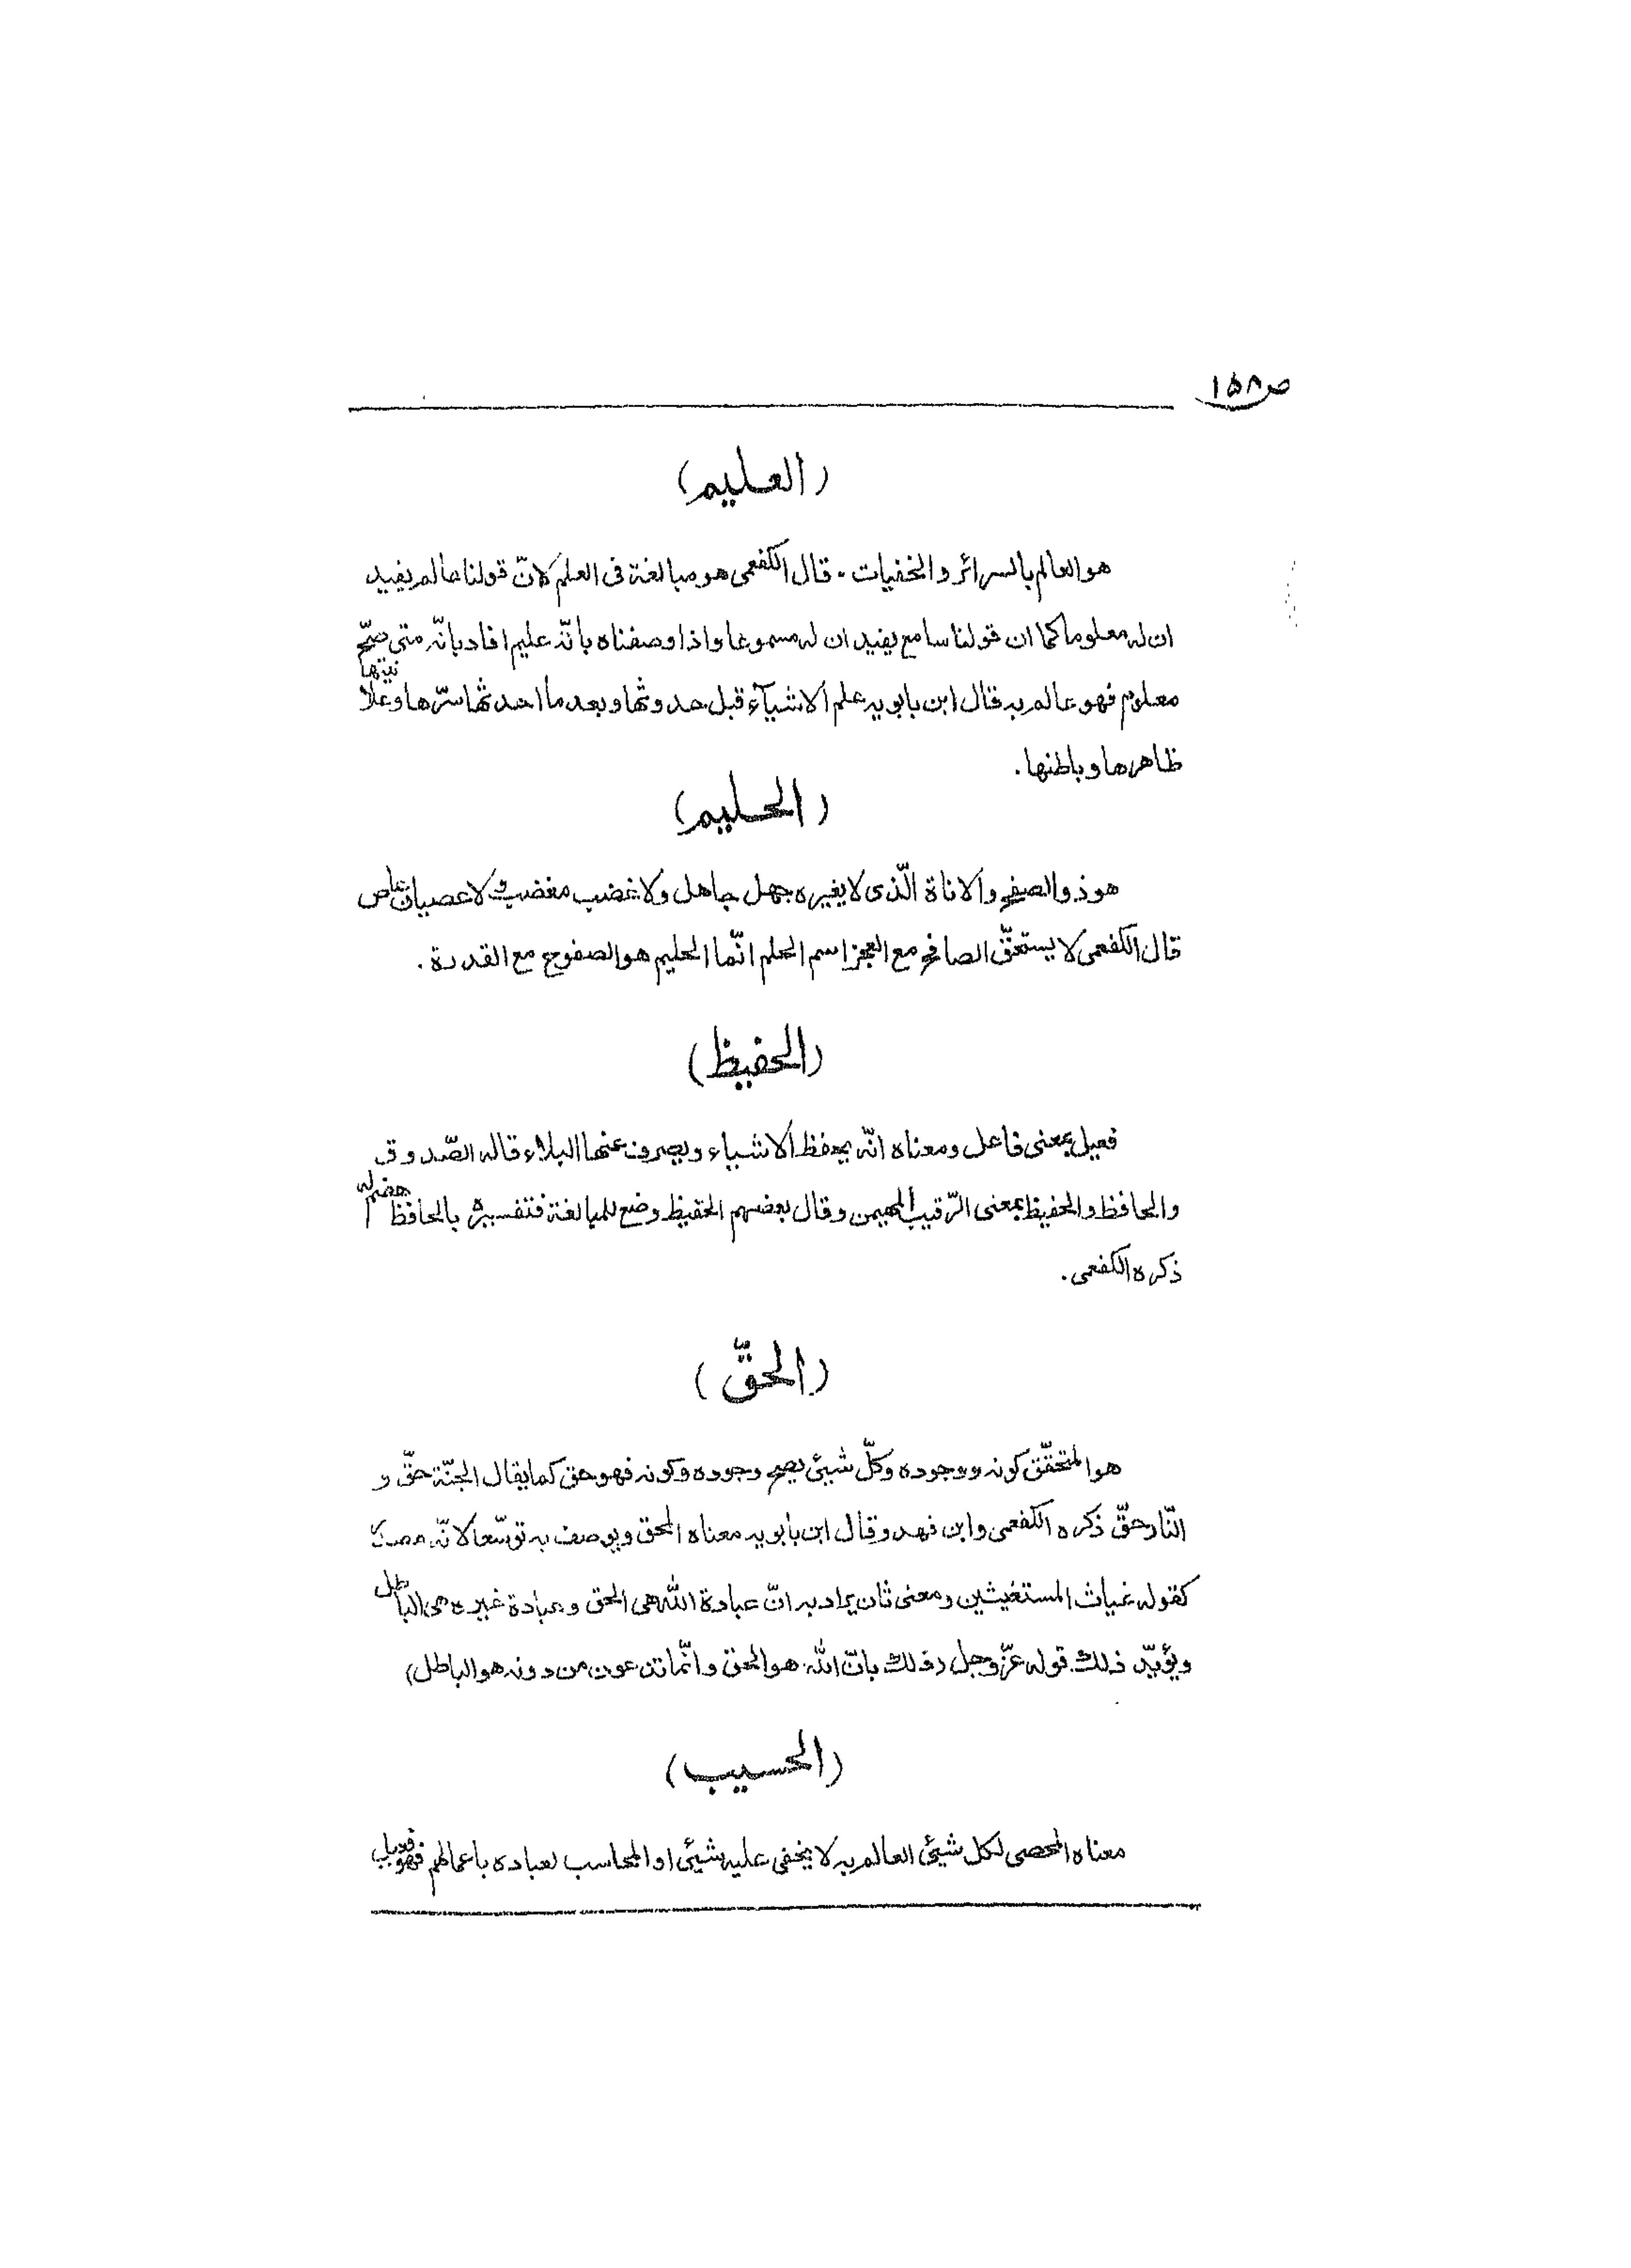 ص ١٥٨
(العليم)
هو العالم بالسرائر والخفيات . قال الكفعمى هو مبالغة فى العلم لانّ قولنا عالم يفيد
ان له معلوما كما ان قولنا سامع يفيد ان له مسموعا واذا وصفناه بانّه عليم افاد بانّه متى صحّ
معلوم فهو عالم به قال ابن بابويه علم الاشيآء قبل حدوثها وبعد ما احدثها سرّها وعلانيتها
ظاهرها وباطنها .
(الحليم)
هو ذو الصفح والاناة الّذى لا يغيره جهل جاهل ولا غضب مغضب ولا عصيان عاص
قال الكفعمى لا يستحقّ الصافح مع العجز اسم الحلم انّما الحليم هو الصفوح مع القدرة .
(الحفيظ)
فعيل بمعنى فاعل ومعناه انّه يحفظ الاشياء ويصرف عنها البلاء قاله الصّدوق
والحافظ والحفيظ بمعنى الرّقيب المهيمن وقال بعضهم الحفيظ وضع للمبالغة فتفسيره بالحافظ هضم له
ذكره الكفعمى .
(الحقّ)
هو المتحقّق كونه ووجوده وكلّ شيئ يصح وجوده وكونه فهو حق كما يقال الجنّة حقّ و
النّار حقّ ذكره الكفعمى وابن فهد وقال ابن بابويه معناه المحق ويوصف به توسّعا لانّه مصدر
كقوله غياث المستغيثين ومعنى ثان يراد به انّ عبادة الله هى الحق وعبادة غيره هى الباطل
ويؤيّد ذلك قوله عزّ وجل (ذلك بانّ الله هو الحق وانّما تدعون من دونه هو الباطل)
(الحسيب)
معناه المحصى لكل شيئ العالم به لا يخفى عليه شيئ او المحاسب لعباده باعمالهم فهو